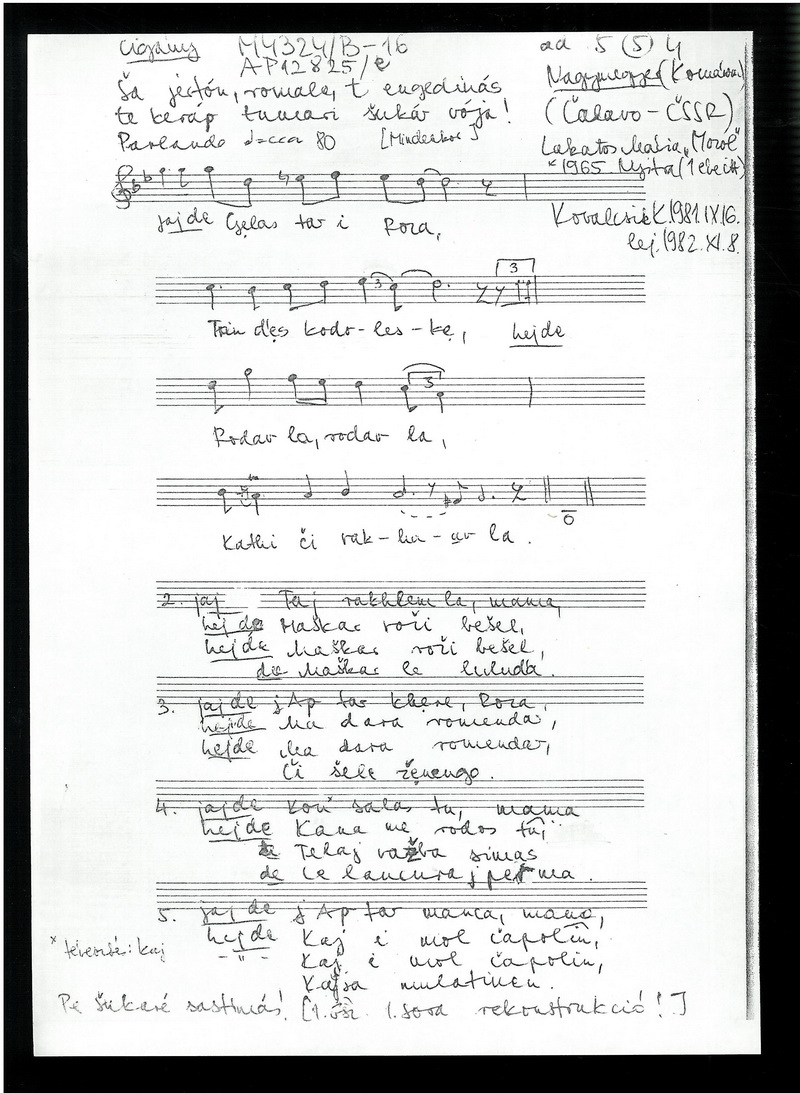 cigány M4324/B-16 ad 5 (5) 4
AP12825/e
Ša jertón, romale, t' engedinás
te keráp tumari šukár vója!
Parlando ♩=cca 80 [Mindenkor]
Nagymegyer (Komárom)
(Čalovo - ČSSR)
Lakatos Mária "Morol"
*1965. Nyitra (1 elei ált)
Kovalcsik K. 1981. IX. 16.
lej. 1982. XI. 8.
jajde Gelas tar i Roza,
Trin d'es kodo-les-ke, hejde
3
Rodav la, rodav la,
3
Kathi či rak-ha-av la.
2. jaj Taj rakhlem la, mama,
hej de Maškar roži bešel,
hejde Maškar roži bešel,
de Maškar le luluda.
3. jajde jAp tar khere, Roza,
hejde Ma dara romendar,
hejde Ma dara romendar,
Či šele ženengo.
4. jajde Kon salas tu, mama
hejde Kana me rodos tu,
Telaj simas
de le lancura j ma.
5. jajde jAp tar manca, mama,
hejde Kaj i mol čapolin,
- " - Kaj i mol čapolin,
Kaj mulatinen.
* teverzté: kaj
Pe šukaré sastimás! [1. vsz. 1. sora rekonstrukció!]